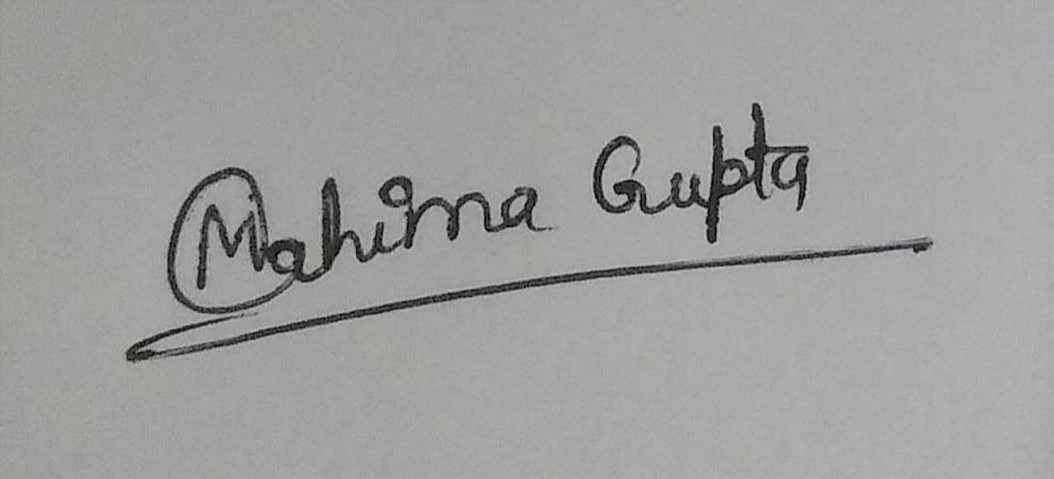 Mahima Gupta